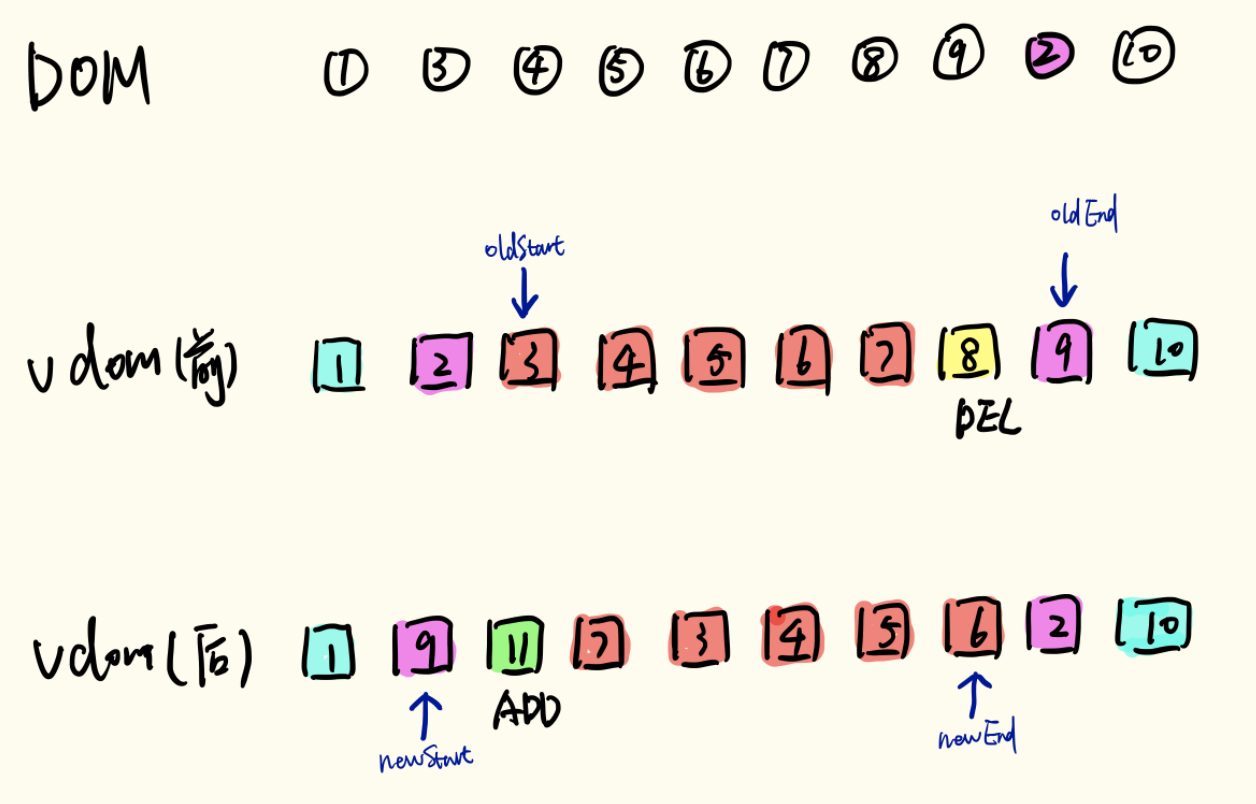 DOM ① ③ ④ ⑤ ⑥ ⑦ ⑧ ⑨ ② ⑩
oldStart oldEnd
vdom(前) 1 2 3 4 5 6 7 8 9 10
DEL
vdom(后) 1 9 11 7 3 4 5 6 2 10
ADD
newStart newEnd